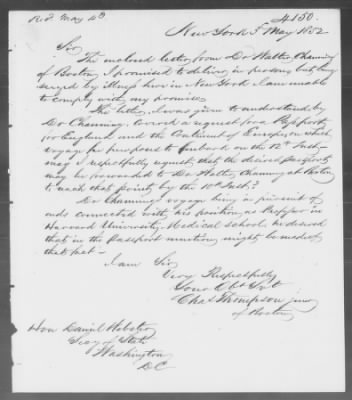 Rd May 4th
4150.
New York 3 May 1852
Sir,
The enclosed letter from Dr Walter Channing
of Boston, I promised to deliver in person, but being
seized by illness here in New York I am unable
to comply with my promise.
The letter, I was given to understand by
Dr Channing, covered a request for a Passport
for England and the Continent of Europe, on which
voyage he proposed to embark on the 12th Inst.
may I respectfully request that the desired passport
may be forwarded to Dr Walter Channing at Boston
to reach that point by the 10th Inst.?
Dr Channings voyage being in pursuit of
ends connected with his position as Professor in
Harvard University Medical School, he desired
that in the Passport mention might be made of
that fact —
I am Sir
Very Respectfully
Your Obt Svt
Chas Thompson junr
of Boston
Hon Daniel Webster
Secy of State
Washington
DC